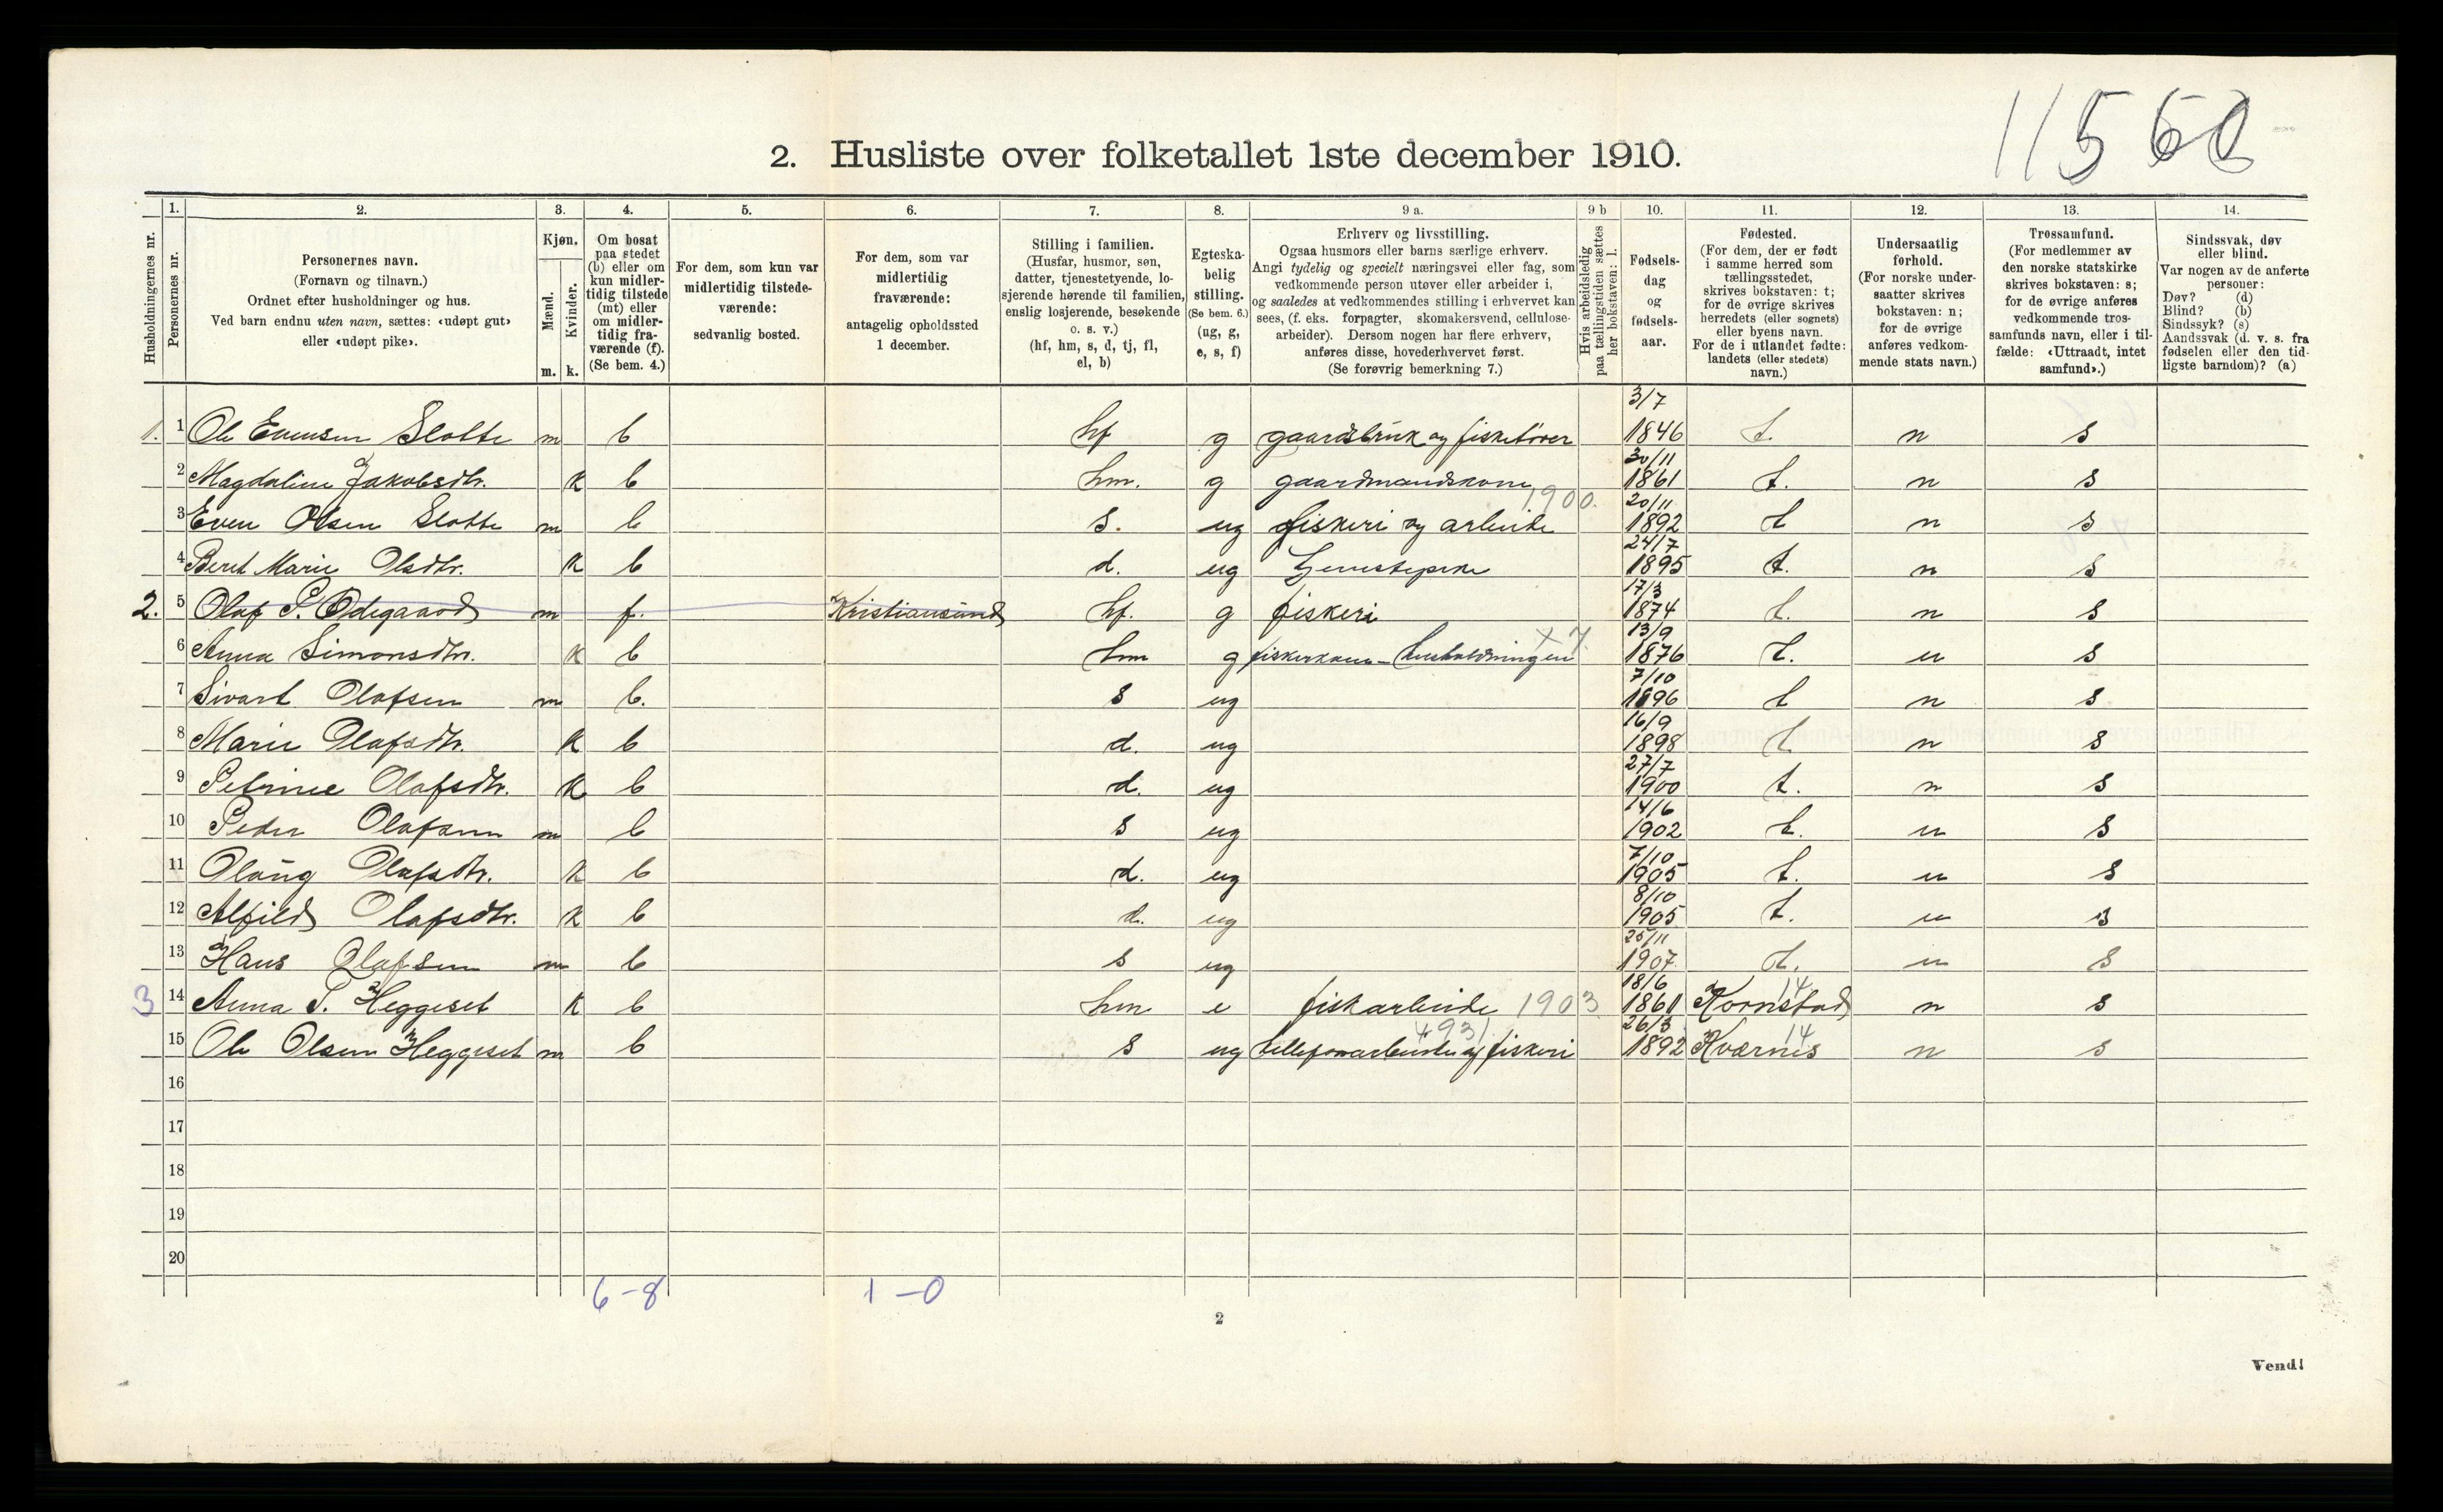 11560
2. Husliste over folketallet 1ste december 1910.
Husholdningernes nr.
1. Personernes nr.
2. Personernes navn. (Fornavn og tilnavn.) Ordnet efter husholdninger og hus. Ved barn endnu uten navn, sættes: «udøpt gut» eller «udøpt pike».
3. Kjøn. Mænd. m. Kvinder. k.
4. Om bosat paa stedet (b) eller om kun midler-tidig tilstede (mt) eller om midler-tidig fra-værende (f). (Se bem. 4.)
5. For dem, som kun var midlertidig tilstede-værende: sedvanlig bosted.
6. For dem, som var midlertidig fraværende: antagelig opholdssted 1 december.
7. Stilling i familien. (Husfar, husmor, søn, datter, tjenestetyende, lo-sjerende hørende til familien, enslig losjerende, besøkende o. s. v.) (hf, hm, s, d, tj, fl, el, b)
8. Egteska-belig stilling. (Se bem. 6.) (ug, g, e, s, f)
9 a. Erhverv og livsstilling. Ogsaa husmors eller barns særlige erhverv. Angi tydelig og specielt næringsvei eller fag, som vedkommende person utøver eller arbeider i, og saaledes at vedkommendes stilling i erhvervet kan sees, (f. eks. forpagter, skomakersvend, cellulose-arbeider). Dersom nogen har flere erhverv, anføres disse, hovederhvervet først. (Se forøvrig bemerkning 7.)
9 b Hvis arbeidsledig paa tællingstiden sættes her bokstaven: l.
10. Fødsels-dag og fødsels-aar.
11. Fødested. (For dem, der er født i samme herred som tællingsstedet, skrives bokstaven: t; for de øvrige skrives herredets (eller sognets) eller byens navn. For de i utlandet fødte: landets (eller stedets) navn.)
12. Undersaatlig forhold. (For norske under-saatter skrives bokstaven: n; for de øvrige anføres vedkom-mende stats navn.)
13. Trossamfund. (For medlemmer av den norske statskirke skrives bokstaven: s; for de øvrige anføres vedkommende tros-samfunds navn, eller i til-fælde: «Uttraadt, intet samfund».)
14. Sindssvak, døv eller blind. Var nogen av de anførte personer: Døv? (d) Blind? (b) Sindssyk? (s) Aandssvak (d. v. s. fra fødselen eller den tid-ligste barndom)? (a)
1. 1 Ole Evensen Slotte m b hf g gaardsbruk og fisketører 3/7 1846 t. n s
2 Magdaline Jakobsdtr. k b hm. g gaardmandskone 30/11 1861 t. n s
3 Even Olsen Slotte m b s. ug fiskeri og arbeide 1900. 20/11 1892 t n s
4 Beret Marie Olsdtr. k b d. ug Tjenestepike 24/7 1895 t. n s
2. 5 Olaf P. Ødegaard m f. Kristiansund hf. g fiskeri 17/3 1874 t. n s
6 Anna Simonsdtr. k b hm g fiskerkone - husholdningen x 7 13/9 1876 t. n s
7 Sivart Olafsen m b. s ug 7/10 1896 t n s
8 Marie Olafsdtr. k b d. ug 16/9 1898 t n s
9 Petrine Olafsdtr. k b d. ug 27/7 1900 t. n s
10 Peder Olafsen m b s ug 14/6 1902 t. n s
11 Olaug Olafsdtr. k b d. ug 7/10 1905 t. n s
12 Alfild Olafsdtr. k b d. ug 8/10 1905 t. n s
13 Hans Olafsen m b s ug 25/11 1907 t. n s
3 14 Anna T. Heggeset k b hm e fiskarbeide 1903 18/6 1861 Kornstad 14 n s
15 Ole Olsen Heggeset m b s ug telefonarbeide og fiskeri 4931 26/3 1892 Kværnis 14 n s
16
17
18
19
20
6-8 1-0
2
Vend!